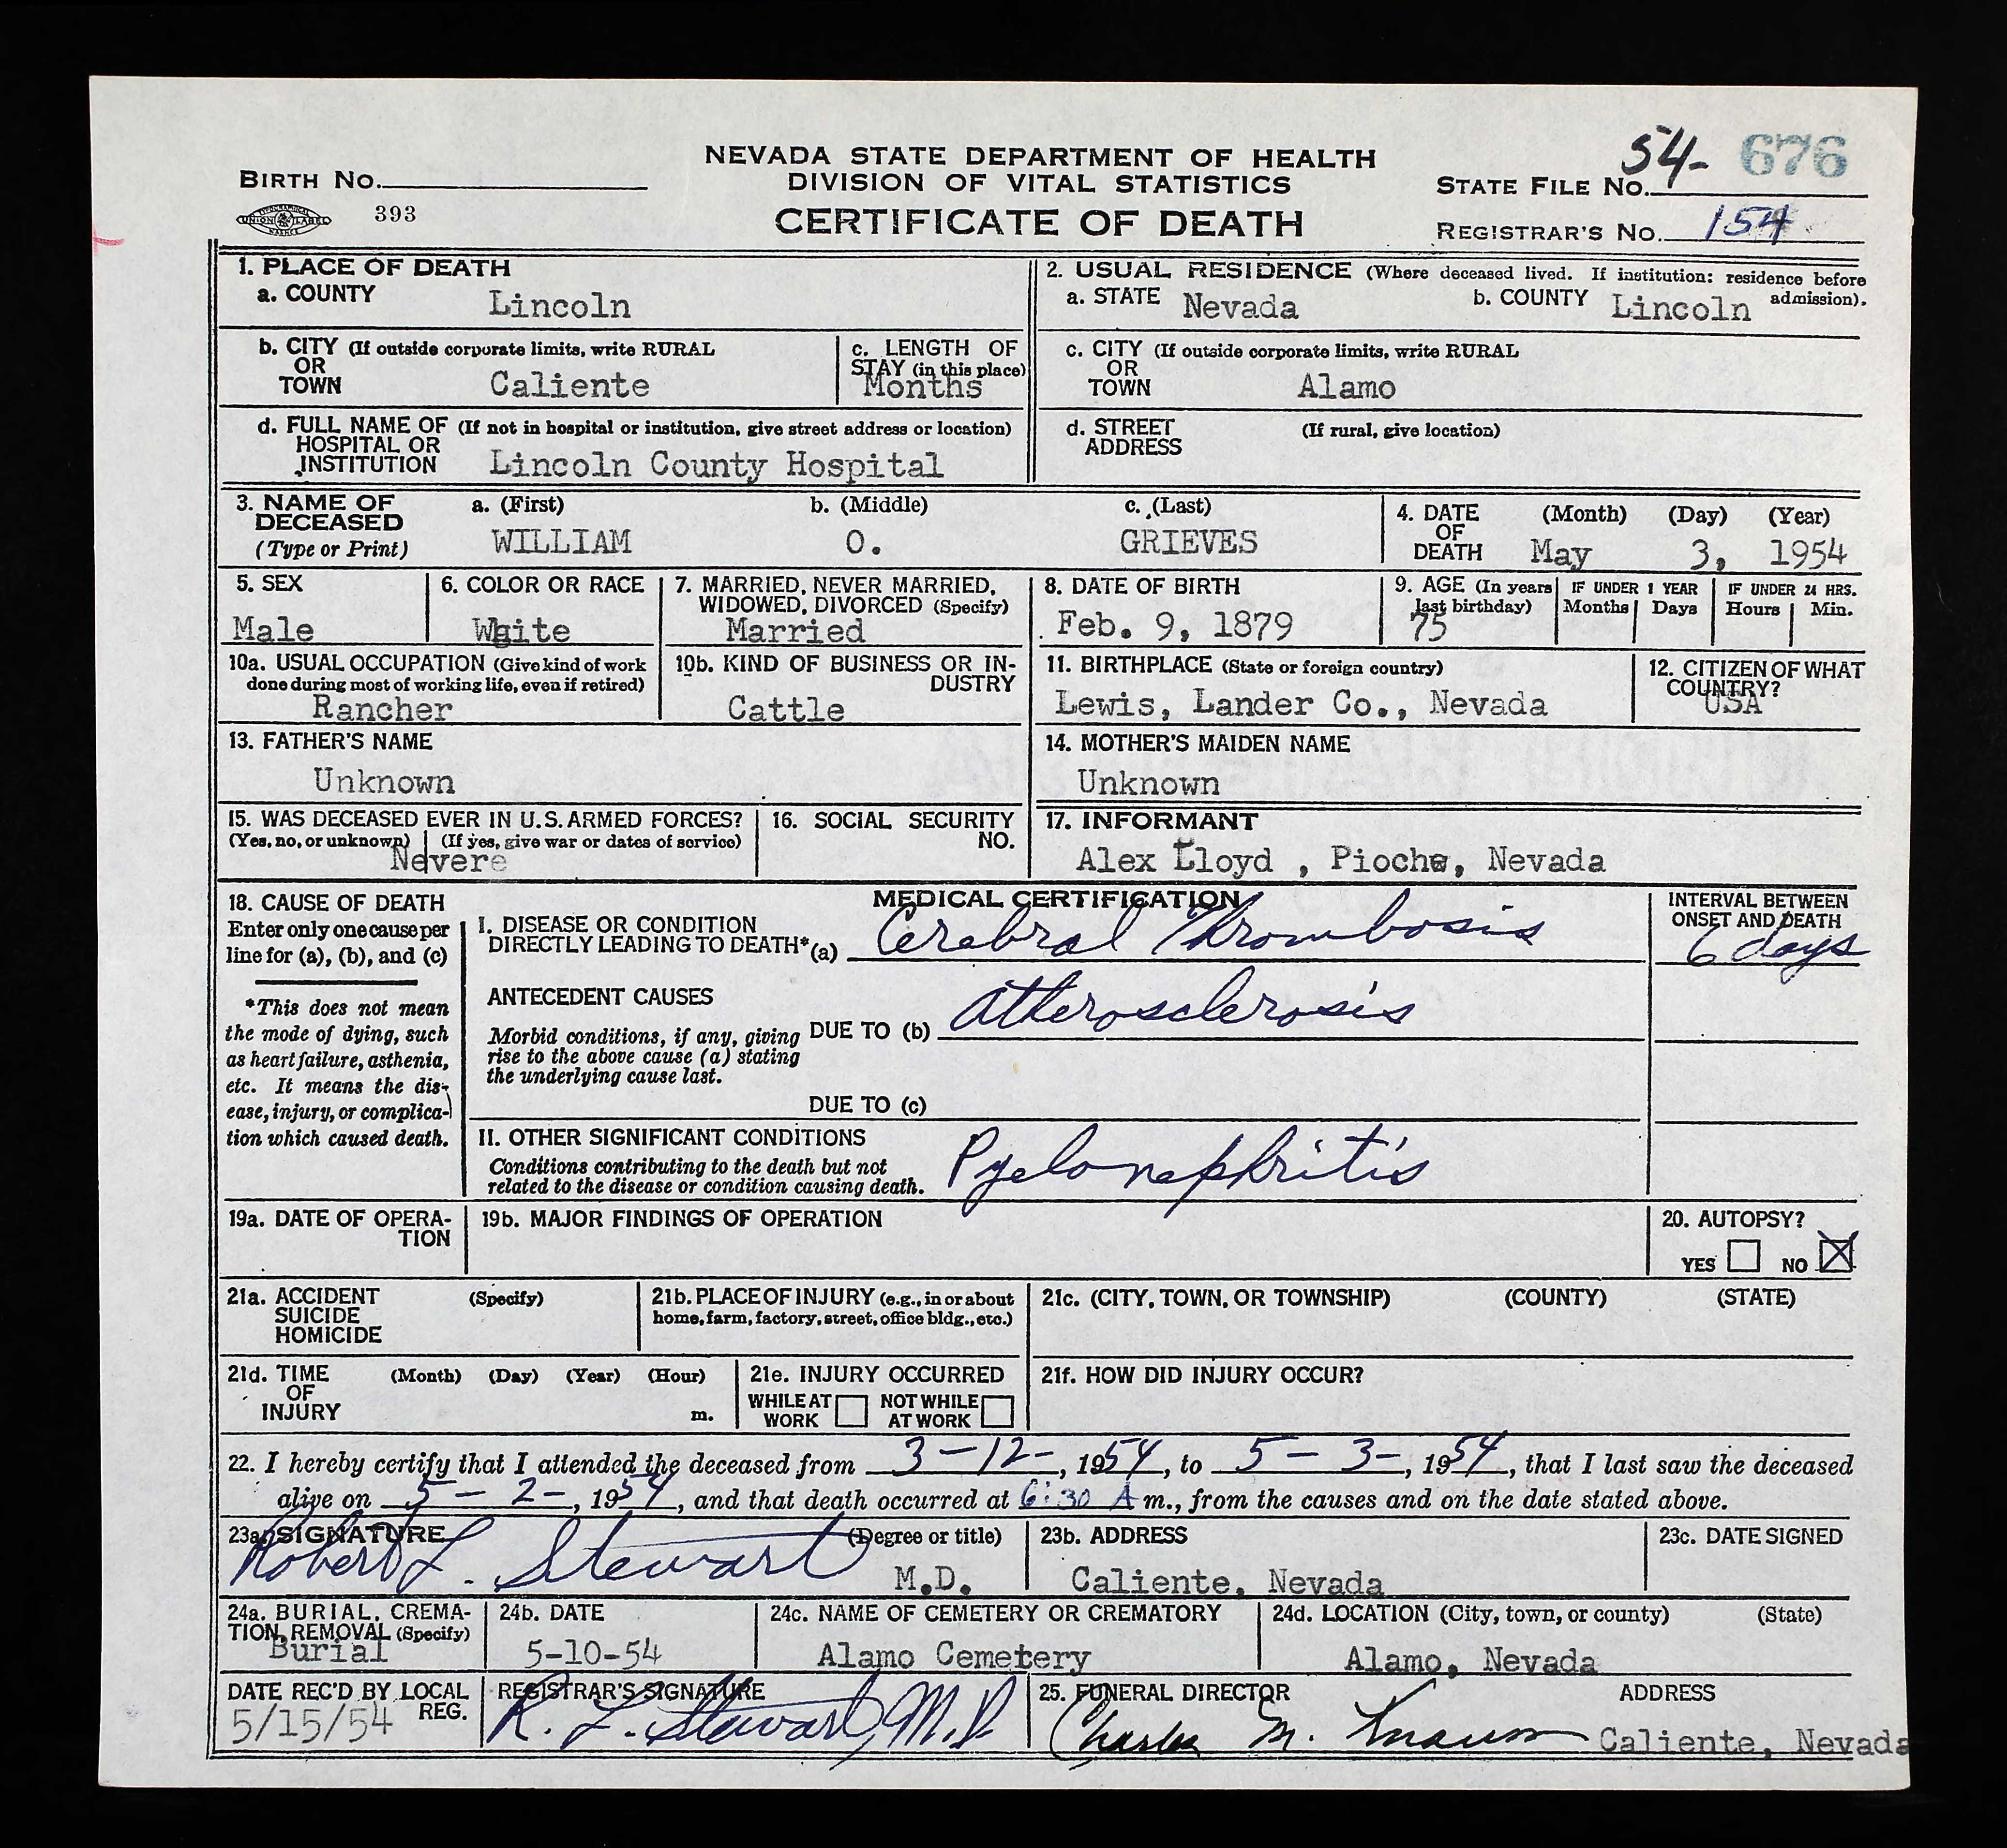 NEVADA STATE DEPARTMENT OF HEALTH
DIVISION OF VITAL STATISTICS
CERTIFICATE OF DEATH
BIRTH NO.
393
STATE FILE NO. 54- 676
REGISTRAR'S NO. 154
1. PLACE OF DEATH
a. COUNTY Lincoln
2. USUAL RESIDENCE (Where deceased lived. If institution: residence before admission).
a. STATE Nevada b. COUNTY Lincoln
b. CITY (If outside corporate limits, write RURAL
OR
TOWN Caliente
c. LENGTH OF
STAY (in this place)
Months
c. CITY (If outside corporate limits, write RURAL
OR
TOWN Alamo
d. FULL NAME OF (If not in hospital or institution, give street address or location)
HOSPITAL OR
INSTITUTION Lincoln County Hospital
d. STREET (If rural, give location)
ADDRESS
3. NAME OF
DECEASED
(Type or Print)
a. (First) b. (Middle) c. (Last)
WILLIAM O. GRIEVES
4. DATE (Month) (Day) (Year)
OF
DEATH May 3, 1954
5. SEX
Male
6. COLOR OR RACE
White
7. MARRIED, NEVER MARRIED,
WIDOWED, DIVORCED (Specify)
Married
8. DATE OF BIRTH
Feb. 9, 1879
9. AGE (In years
last birthday)
75
IF UNDER 1 YEAR
Months Days
IF UNDER 24 HRS.
Hours Min.
10a. USUAL OCCUPATION (Give kind of work
done during most of working life, even if retired)
Rancher
10b. KIND OF BUSINESS OR IN-
DUSTRY
Cattle
11. BIRTHPLACE (State or foreign country)
Lewis, Lander Co., Nevada
12. CITIZEN OF WHAT
COUNTRY?
USA
13. FATHER'S NAME
Unknown
14. MOTHER'S MAIDEN NAME
Unknown
15. WAS DECEASED EVER IN U.S. ARMED FORCES?
(Yes, no, or unknown) (If yes, give war or dates of service)
Nevere
16. SOCIAL SECURITY
NO.
17. INFORMANT
Alex Lloyd , Pioche, Nevada
18. CAUSE OF DEATH
Enter only one cause per
line for (a), (b), and (c)
*This does not mean
the mode of dying, such
as heart failure, asthenia,
etc. It means the dis-
ease, injury, or complica-
tion which caused death.
MEDICAL CERTIFICATION
I. DISEASE OR CONDITION
DIRECTLY LEADING TO DEATH* (a) Cerebral Thrombosis
INTERVAL BETWEEN
ONSET AND DEATH
6 days
ANTECEDENT CAUSES
Morbid conditions, if any, giving
rise to the above cause (a) stating
the underlying cause last.
DUE TO (b) Atherosclerosis
DUE TO (c)
II. OTHER SIGNIFICANT CONDITIONS
Conditions contributing to the death but not
related to the disease or condition causing death.
Pyelonephritis
19a. DATE OF OPERA-
TION
19b. MAJOR FINDINGS OF OPERATION
20. AUTOPSY?
YES NO
21a. ACCIDENT (Specify)
SUICIDE
HOMICIDE
21b. PLACE OF INJURY (e.g., in or about
home, farm, factory, street, office bldg., etc.)
21c. (CITY, TOWN, OR TOWNSHIP) (COUNTY) (STATE)
21d. TIME (Month) (Day) (Year) (Hour)
OF
INJURY m.
21e. INJURY OCCURRED
WHILE AT NOT WHILE
WORK AT WORK
21f. HOW DID INJURY OCCUR?
22. I hereby certify that I attended the deceased from 3-12-, 1954, to 5-3-, 1954, that I last saw the deceased
alive on 5-2-, 1954, and that death occurred at 6:30 A m., from the causes and on the date stated above.
23a. SIGNATURE (Degree or title)
Robert L. Stewart M.D.
23b. ADDRESS
Caliente, Nevada
23c. DATE SIGNED
24a. BURIAL, CREMA-
TION, REMOVAL (Specify)
Burial
24b. DATE
5-10-54
24c. NAME OF CEMETERY OR CREMATORY
Alamo Cemetery
24d. LOCATION (City, town, or county) (State)
Alamo, Nevada
DATE REC'D BY LOCAL
REG.
5/15/54
REGISTRAR'S SIGNATURE
R. L. Stewart, M.D.
25. FUNERAL DIRECTOR ADDRESS
Charles M. Caliente, Nevada